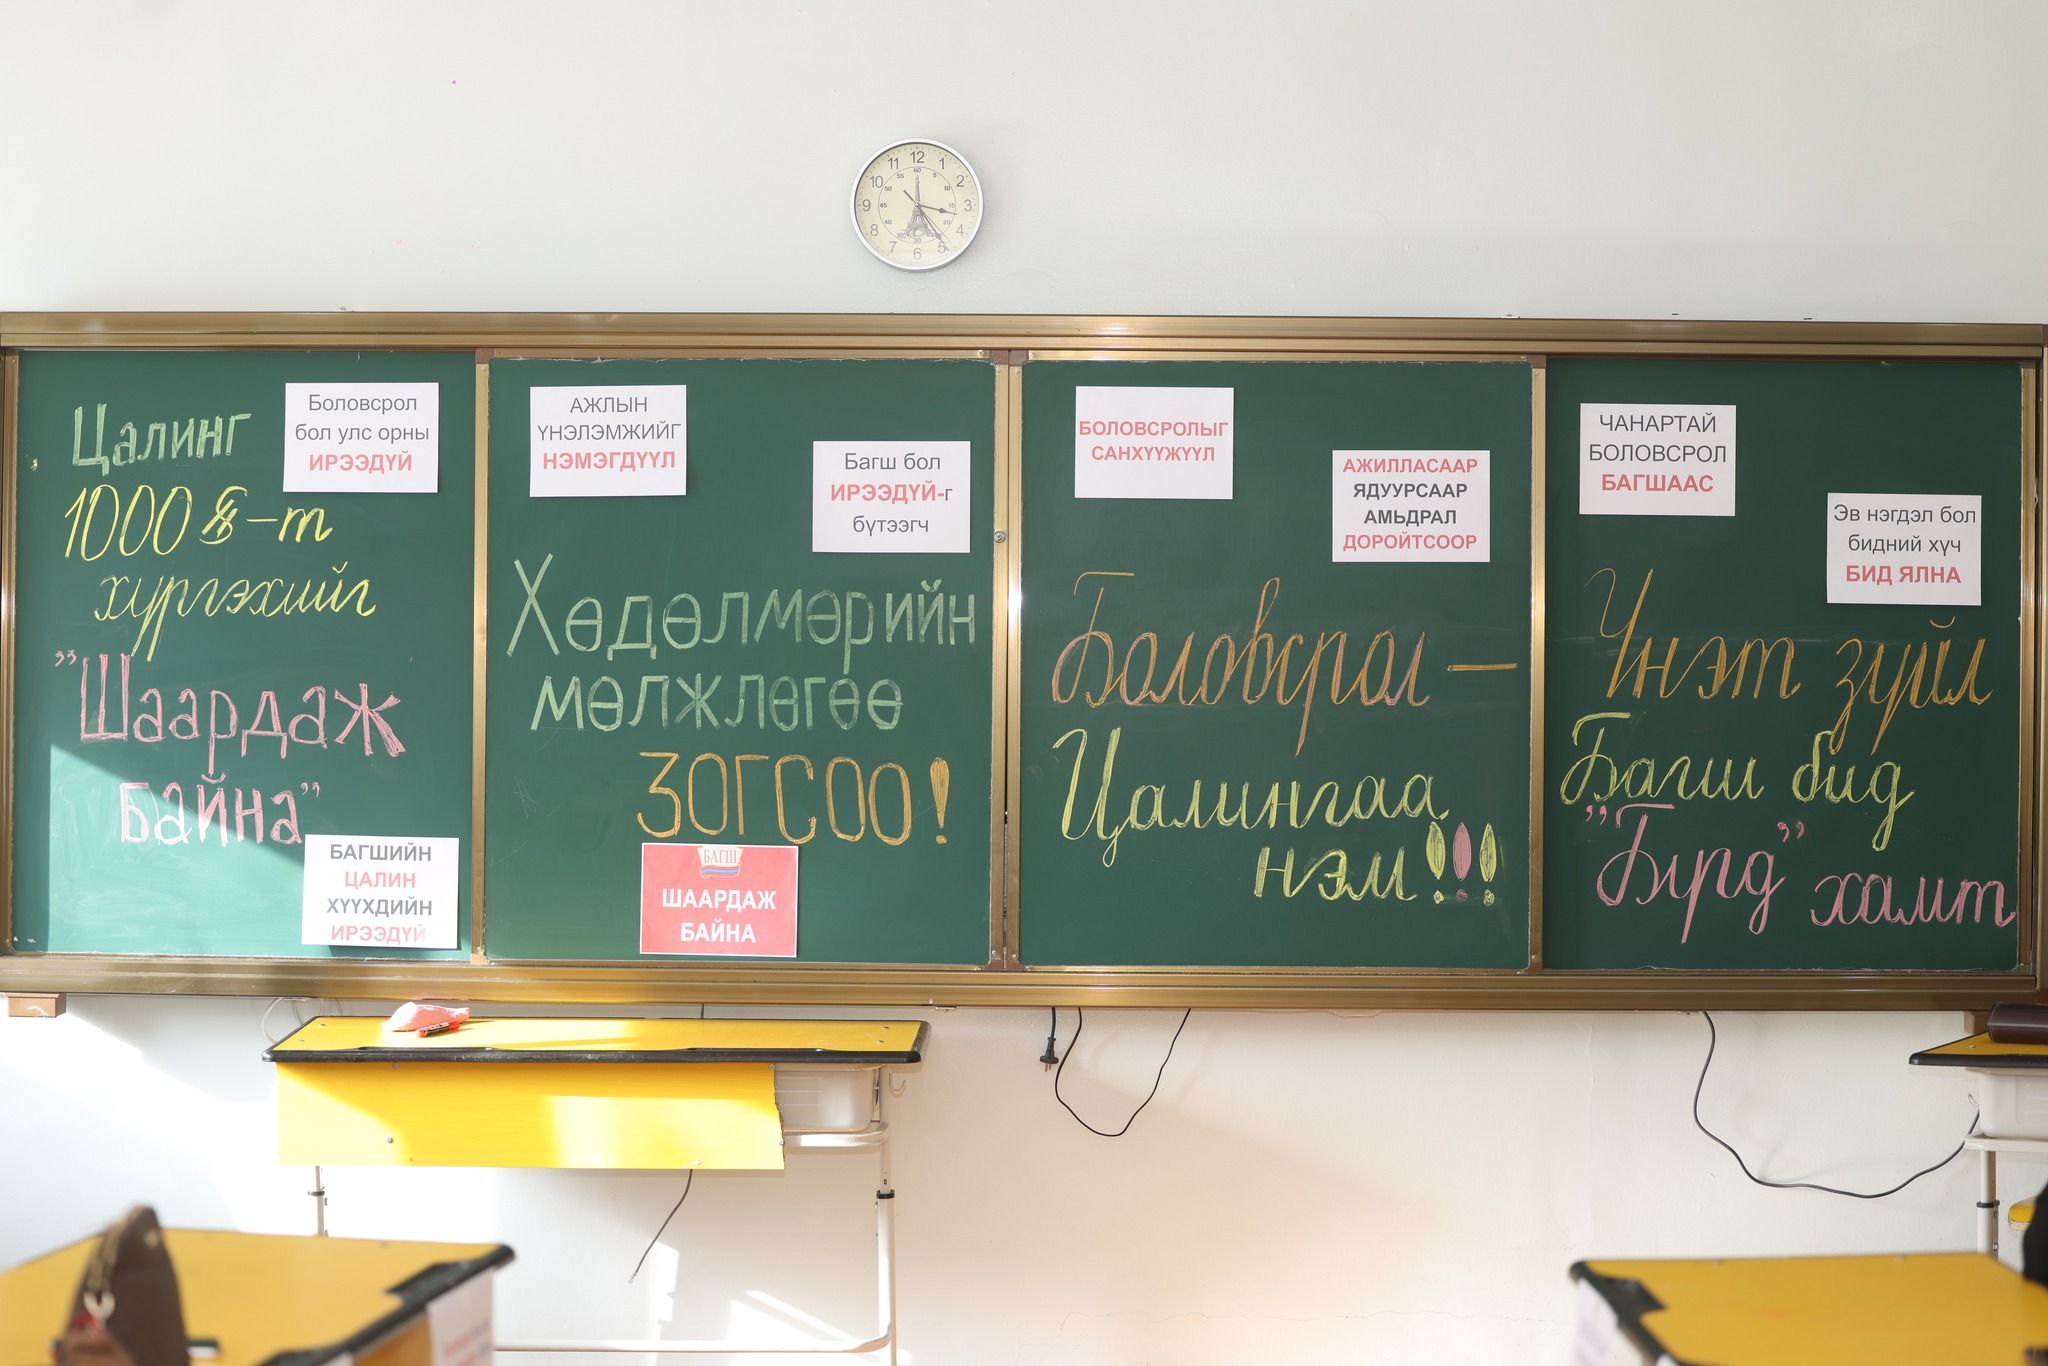 Цалинг
1000$-т
хүргэхийг
"Шаардаж
байна"
Боловсрол
бол улс орны
ИРЭЭДҮЙ
БАГШИЙН
ЦАЛИН
ХҮҮХДИЙН
ИРЭЭДҮЙ
АЖЛЫН
ҮНЭЛЭМЖИЙГ
НЭМЭГДҮҮЛ
Багш бол
ИРЭЭДҮЙ-г
бүтээгч
Хөдөлмөрийн
мөлжлөгөө
ЗОГСОО!
БАГШ
ШААРДАЖ
БАЙНА
БОЛОВСРОЛЫГ
САНХҮҮЖҮҮЛ
АЖИЛЛАСААР
ЯДУУРСААР
АМЬДРАЛ
ДОРОЙТСООР
Боловсрол –
Цалингаа
нэм!!!
ЧАНАРТАЙ
БОЛОВСРОЛ
БАГШААС
Эв нэгдэл бол
бидний хүч
БИД ЯЛНА
Үнэт зүйл
Багш бид
"Бүрд" хамт
12
1
2
3
4
5
6
7
8
9
10
11